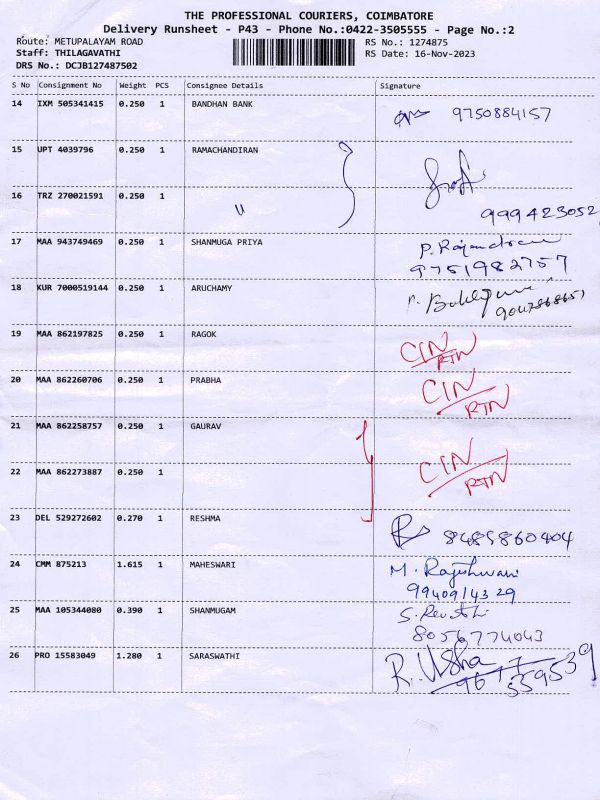 THE PROFESSIONAL COURIERS, COIMBATORE
Delivery Runsheet - P43 - Phone No.:0422-3505555 - Page No.:2
Route: METUPALAYAM ROAD RS No.: 1274875
Staff: THILAGAVATHI RS Date: 16-Nov-2023
DRS No.: DCJB127487502
S No Consignment No Weight PCS Consignee Details Signature
14 IXM 505341415 0.250 1 BANDHAN BANK 9750884157
15 UPT 4039796 0.250 1 RAMACHANDIRAN
16 TRZ 270021591 0.250 1 〃 999423052
17 MAA 943749469 0.250 1 SHANMUGA PRIYA P. Rajendran
9751982757
18 KUR 7000519144 0.250 1 ARUCHAMY
19 MAA 862197825 0.250 1 RAGOK CIN/RTN
20 MAA 862260706 0.250 1 PRABHA CIN/RTN
21 MAA 862258757 0.250 1 GAURAV
22 MAA 862273887 0.250 1 CIN/RTN
23 DEL 529272602 0.270 1 RESHMA 8489860404
24 CMM 875213 1.615 1 MAHESWARI M. Rajeshwari
9940914329
25 MAA 105344080 0.390 1 SHANMUGAM S. Revathi
8056774043
26 PRO 15583049 1.280 1 SARASWATHI R. Usha